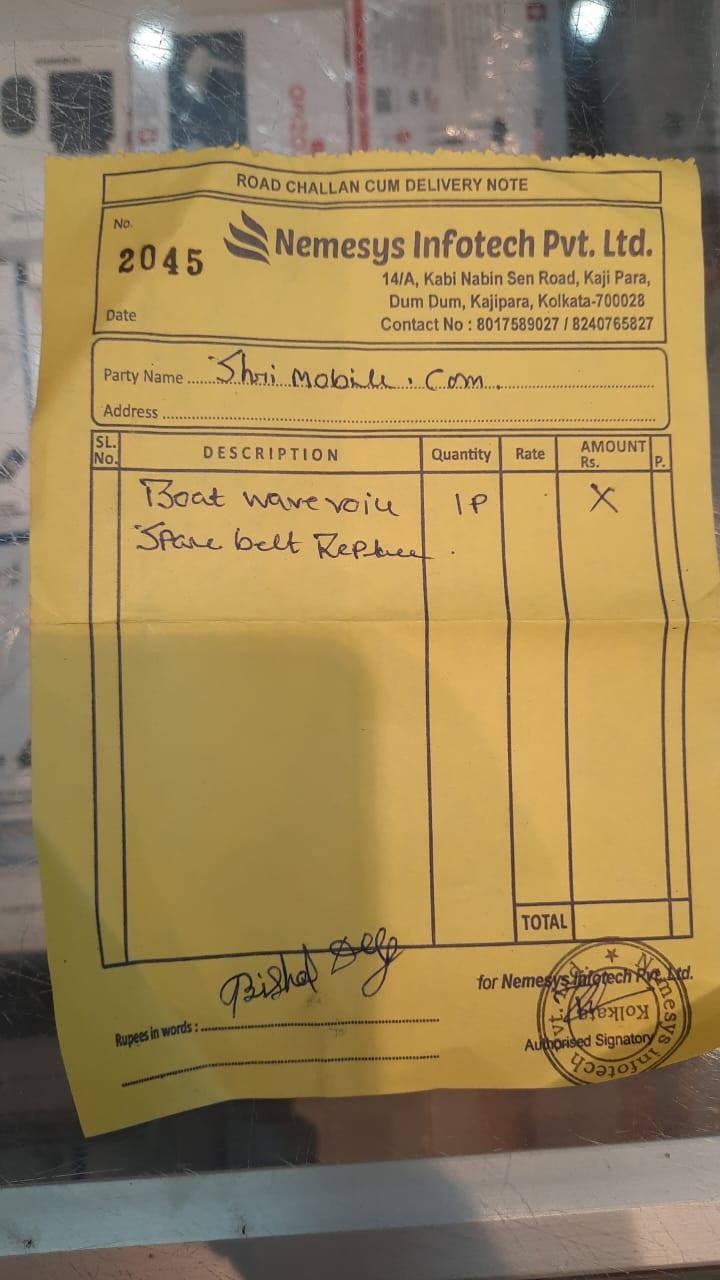 ROAD CHALLAN CUM DELIVERY NOTE
No.
2045
Nemesys Infotech Pvt. Ltd.
14/A, Kabi Nabin Sen Road, Kaji Para,
Dum Dum, Kajipara, Kolkata-700028
Date
Contact No : 8017589027 / 8240765827
Party Name Shri Mobile. Com.
Address
SL. No. DESCRIPTION Quantity Rate AMOUNT Rs. P.
Boat wave voice 1P X
Spare belt Replace
TOTAL
Bishal
for Nemesys Infotech Pvt. Ltd.
Nemesys Infotech Pvt. Ltd. Kolkata
Rupees in words :
Authorised Signatory